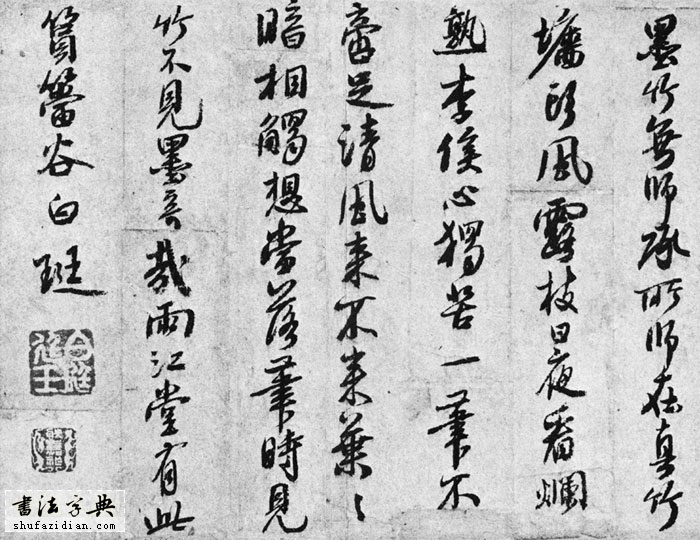 墨竹無師承所師在真竹
墻頭風露枝日夜看爛
熟李侯心獨苦一筆不
啻足清風來不來葉〻
暗相觸想當落筆時見
竹不見墨奇哉兩江堂有此
篔簹谷白珽
書法字典
shufazidian.com